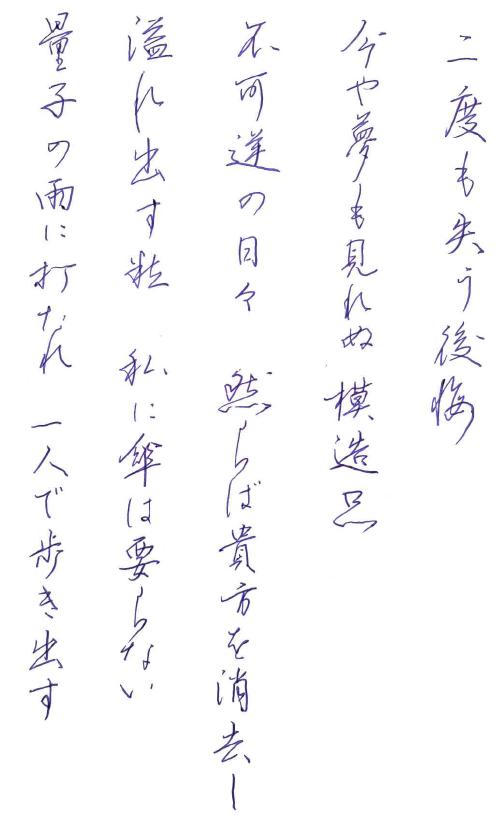 二度も失う後悔
今や夢も見れぬ 模造品
不可逆の日々 然らば貴方を消去し
溢れ出す粒 私に傘は要らない
量子の雨に打たれ 一人で歩き出す